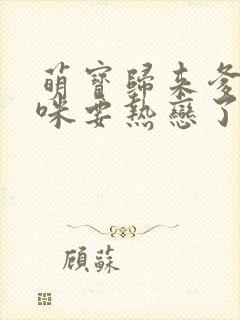 萌寶歸来爹
咪要熱戀了
顧蘇